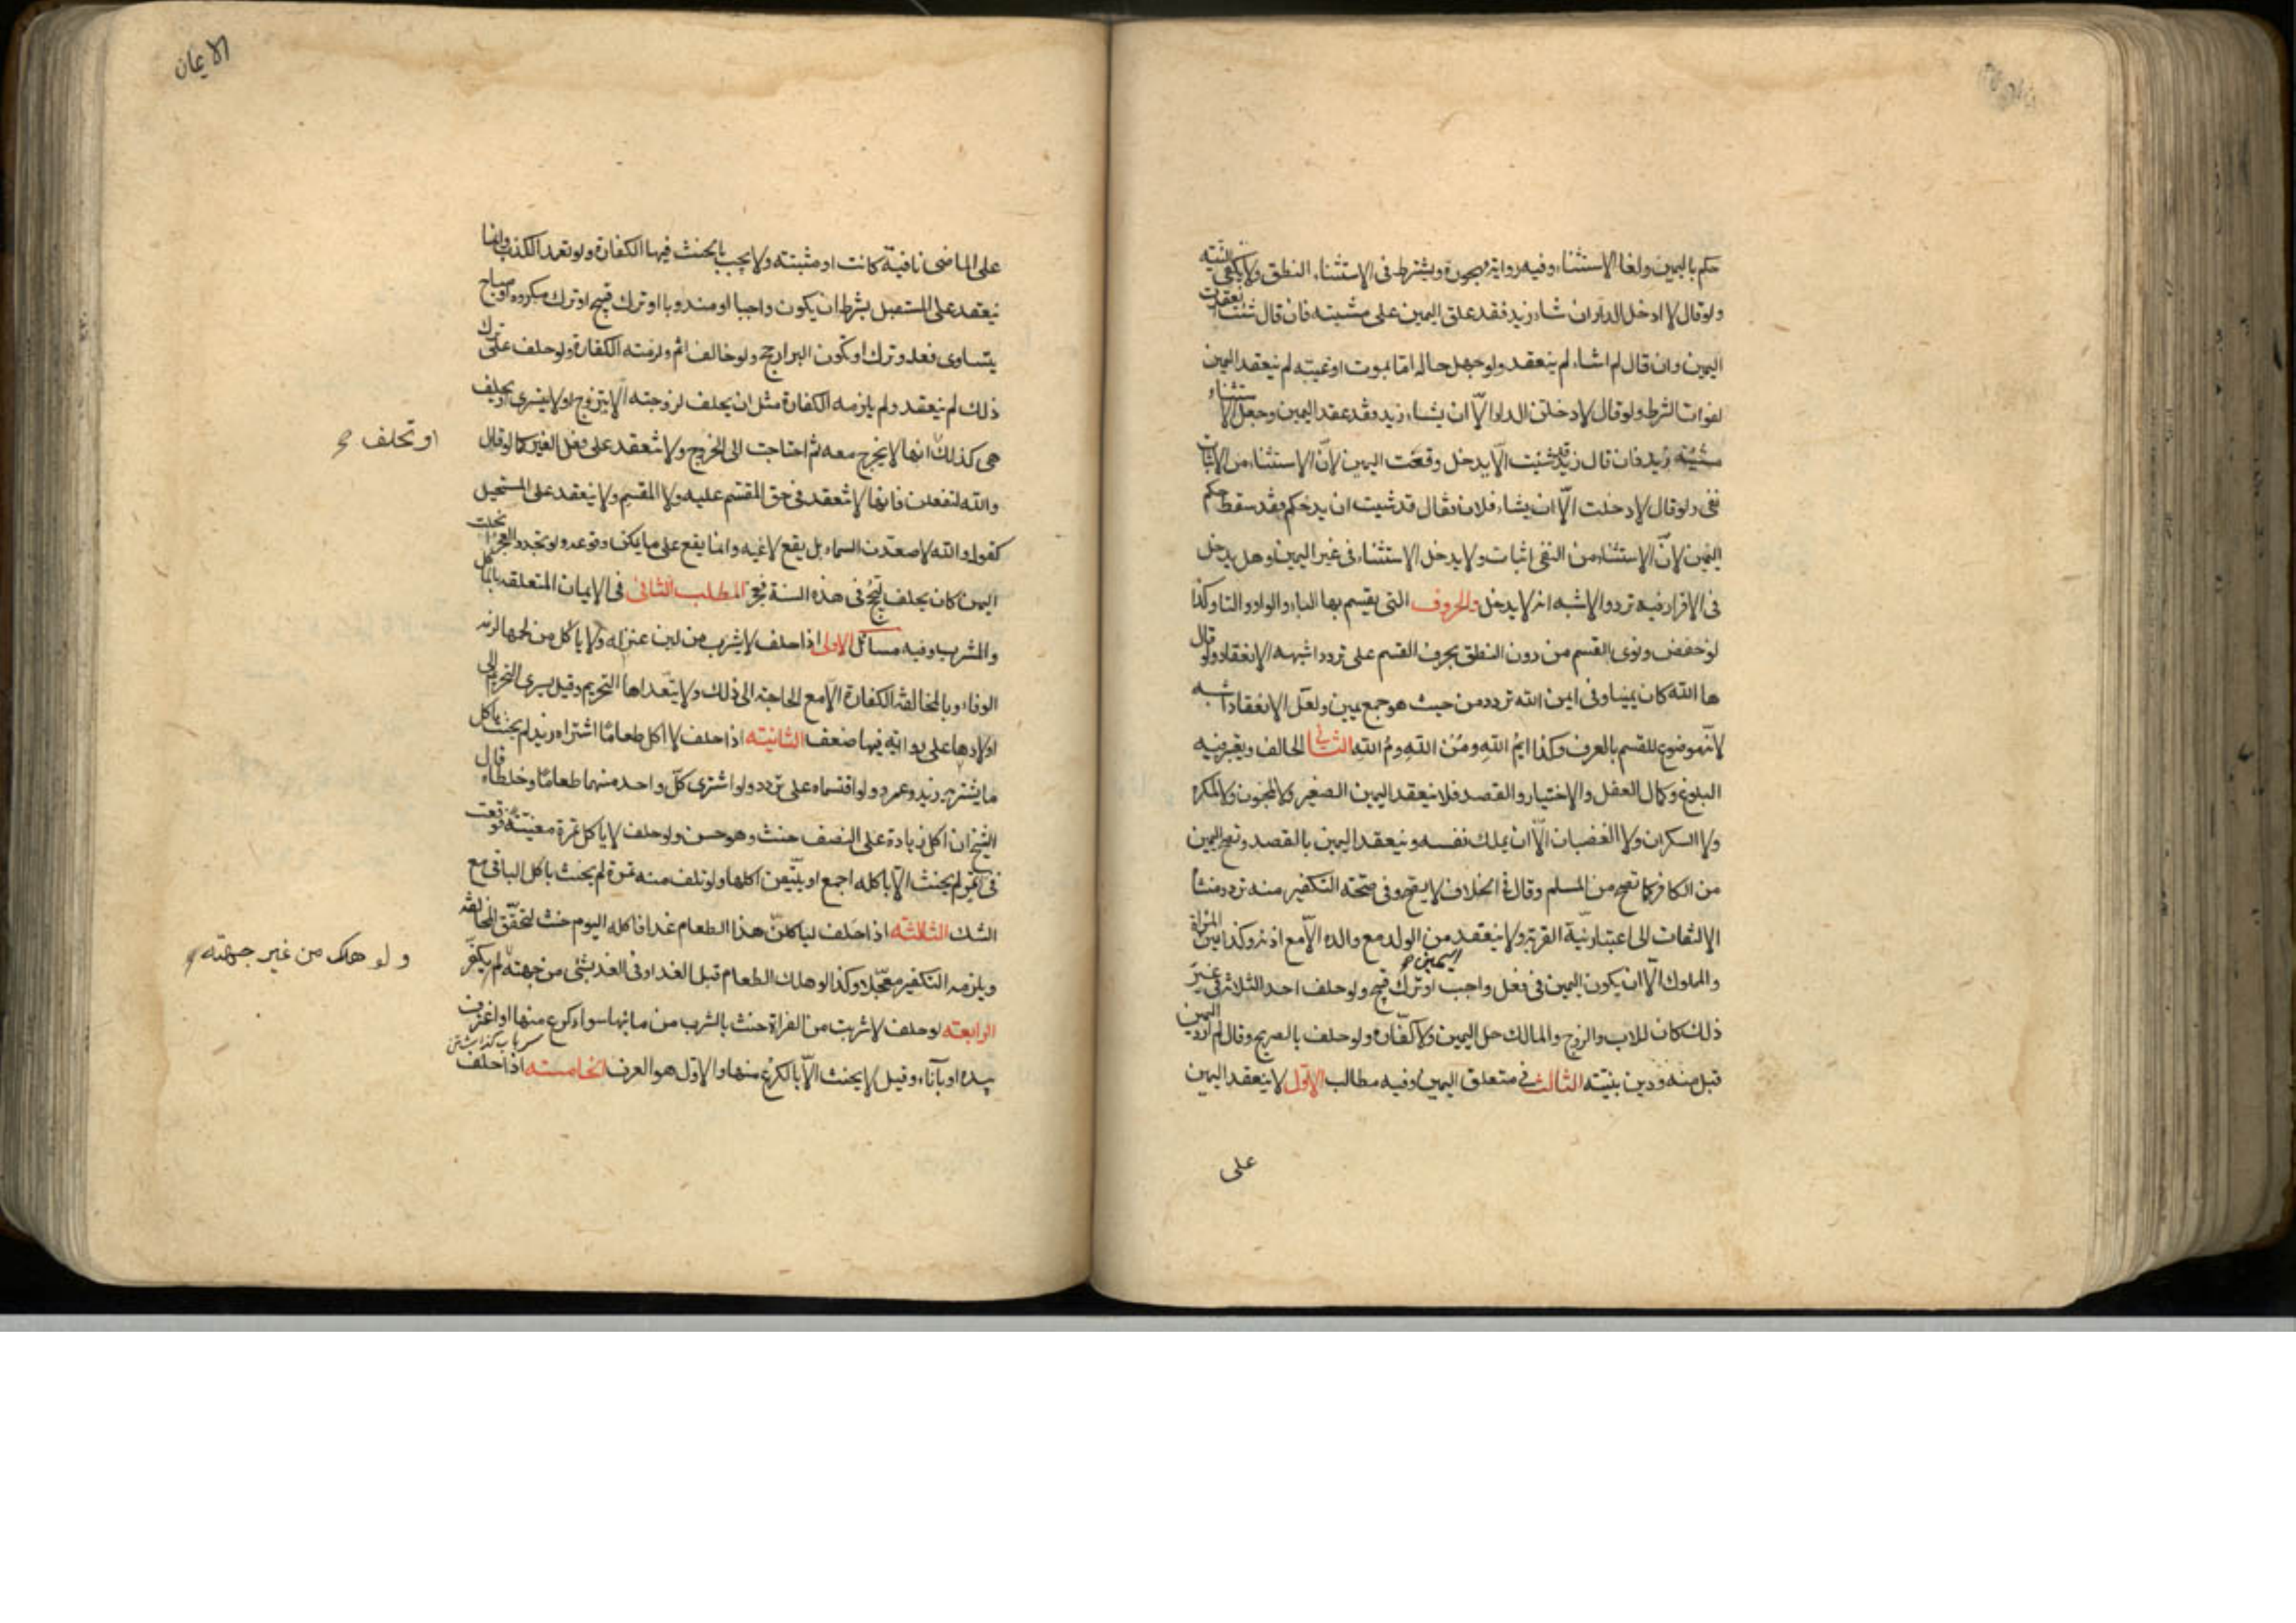 حكم باليمين ولغا الاستثناء وفيه رواية مهجورة ويشترط في الاستثناء النطق ولا يكفي النية
ولو قال لا ادخل الدار ان شاء زيد فقد علق اليمين على مشيته فان قال شئت انعقدت
اليمين وان قال لم اشاء لم ينعقد ولو جهل حاله اما بموت او غيبة لم ينعقد اليمين
لفوات الشرط ولو قال لادخلن الدار الّا ان يشاء زيد وقد عقد اليمين وجعل الاستثناء
مشيته زيد فان قال زيد قد شئت الّا يدخل وقعت اليمين لانّ الاستثناء من الاثبات
نفى ولو قال لا دخلت الّا ان يشاء فلان فقال قد شيت ان يدخل فقد سقط حكم
اليمين لانّ الاستثناء من النفى اثبات ولا يدخل الاستثناء في غير اليمين وهل يدخل
في الاقرار فيه تردد والاشبه انه لا يدخل والحروف التي يقسم بها الباء والواو والتا وكذا
لو خفض ونوى القسم من دون النطق بحرف القسم على تردد اشبهه الانعقاد ولو قال
ها الله كان يمينا وفي ايمن الله تردد من حيث هو جمع يمين ولعل الانعقاد اشبه
لانّه موضوع للقسم بالعرف وكذا ايمُ اللهِ ومن اللهِ ومُ اللهِ الثاني الحالف ويعتبر فيه
البلوغ وكمال العقل والاختيار والقصد فلا ينعقد اليمين الصغير ولا المجنون ولا المكره
ولا السكران ولا الغضبان الّا ان يملك نفسه وينعقد اليمين بالقصد وتصح اليمين
من الكافر كما تصح من المسلم وقال في الخلاف لا يصح وفي صحته التكفير منه تردد منشأ
الالتفات الى اعتبار نيّة القربة ولا ينعقد من الولد مع والده الّا مع اذنه وكذا يمين المرأة
والمملوك الّا ان يكون اليمين في فعل واجب او ترك قبيح ولو حلف احد الثلاثة في غير
اليمين
ذلك كان للاب والزوج والمالك حل اليمين ولا كفّارة ولو حلف بالصريح وقال لم ارد اليمين
قبل منه ودين بنيّته الثالث في متعلق اليمين وفيه مطالب الاوّل لا ينعقد اليمين
على
الايمان
على الماضى نافية كانت او مثبتة ولا يجب بالحنث فيها الكفارة ولو تعمد الكذب وانما
ينعقد على المستقبل بشرط ان يكون واجبا او مندوبا او ترك قبيح او ترك مكروه او مباح
يتساوى فعله وتركه او يكون البر ارجح ولو خالف اثم ولزمته الكفارة ولو حلف على ترك
ذلك لم ينعقد ولم يلزمه الكفارة مثل ان يحلف لزوجته الّا يتزوج او لا يتسرى او يحلف
هى كذلك انها لا يخرج معه ثم احتاجت الى الخروج ولا تنعقد على فعل الغير كما لو قال
او تحلف
والله لتفعلن فانها لا تنعقد في حق المقسم عليه ولا المقسم ولا ينعقد على المستحيل
كقوله والله لاصعدن السماء بل يقع لاغيه وانما يقع على ما يمكن وقوعه ولو تجدد العجز انحلت
اليمين كان يحلف ليحج في هذه السنة فيعجز المطلب الثانى في الايمان المتعلقه بالماكل
والمشرب وفيه مسائل الاولى اذا حلف لا يشرب من لبن عنز له ولا ياكل من لحمها لزمه
الوفاء وبالمخالفة الكفارة الّا مع الحاجة الى ذلك ولا يتعداها التحريم وقيل يسرى التحريم الى
اولادها على رواية فيها ضعف الثانيته اذا حلف لا اكل طعامًا اشتراه زيد لم يحنث باكل
ما يشتريه زيد وعمرو ولو اقتسماه على تردد ولو اشترى كلّ واحد منهما طعامًا وخلطاه قال
الشيخ ان اكل زيادة على النصف حنث وهو حسن ولو حلف لا ياكل تمرة معيّنة فوقعت
في تمر لم يحنث الّا باكله اجمع او يتيقن اكلها ولو تلف منه تمرة لم يحنث باكل الباقى مع
الشك الثلثته اذا حلف لياكلنّ هذا الطعام غدا فاكله اليوم حنث لتحقّق المخالفة
ويلزمه التكفير معجّلا وكذا لو هلك الطعام قبل الغد او في الغد بشئ من جهته لم يكفّر
ولو هلك من غير جهته
الرابعته لو حلف لا شربت من الفراة حنث بالشرب من مائها سواء كرع منها او اغترف
بيده او بآناء وقيل لا يحنث الّا بالكرع منها والاوّل هو العرف الخامسته اذا حلف